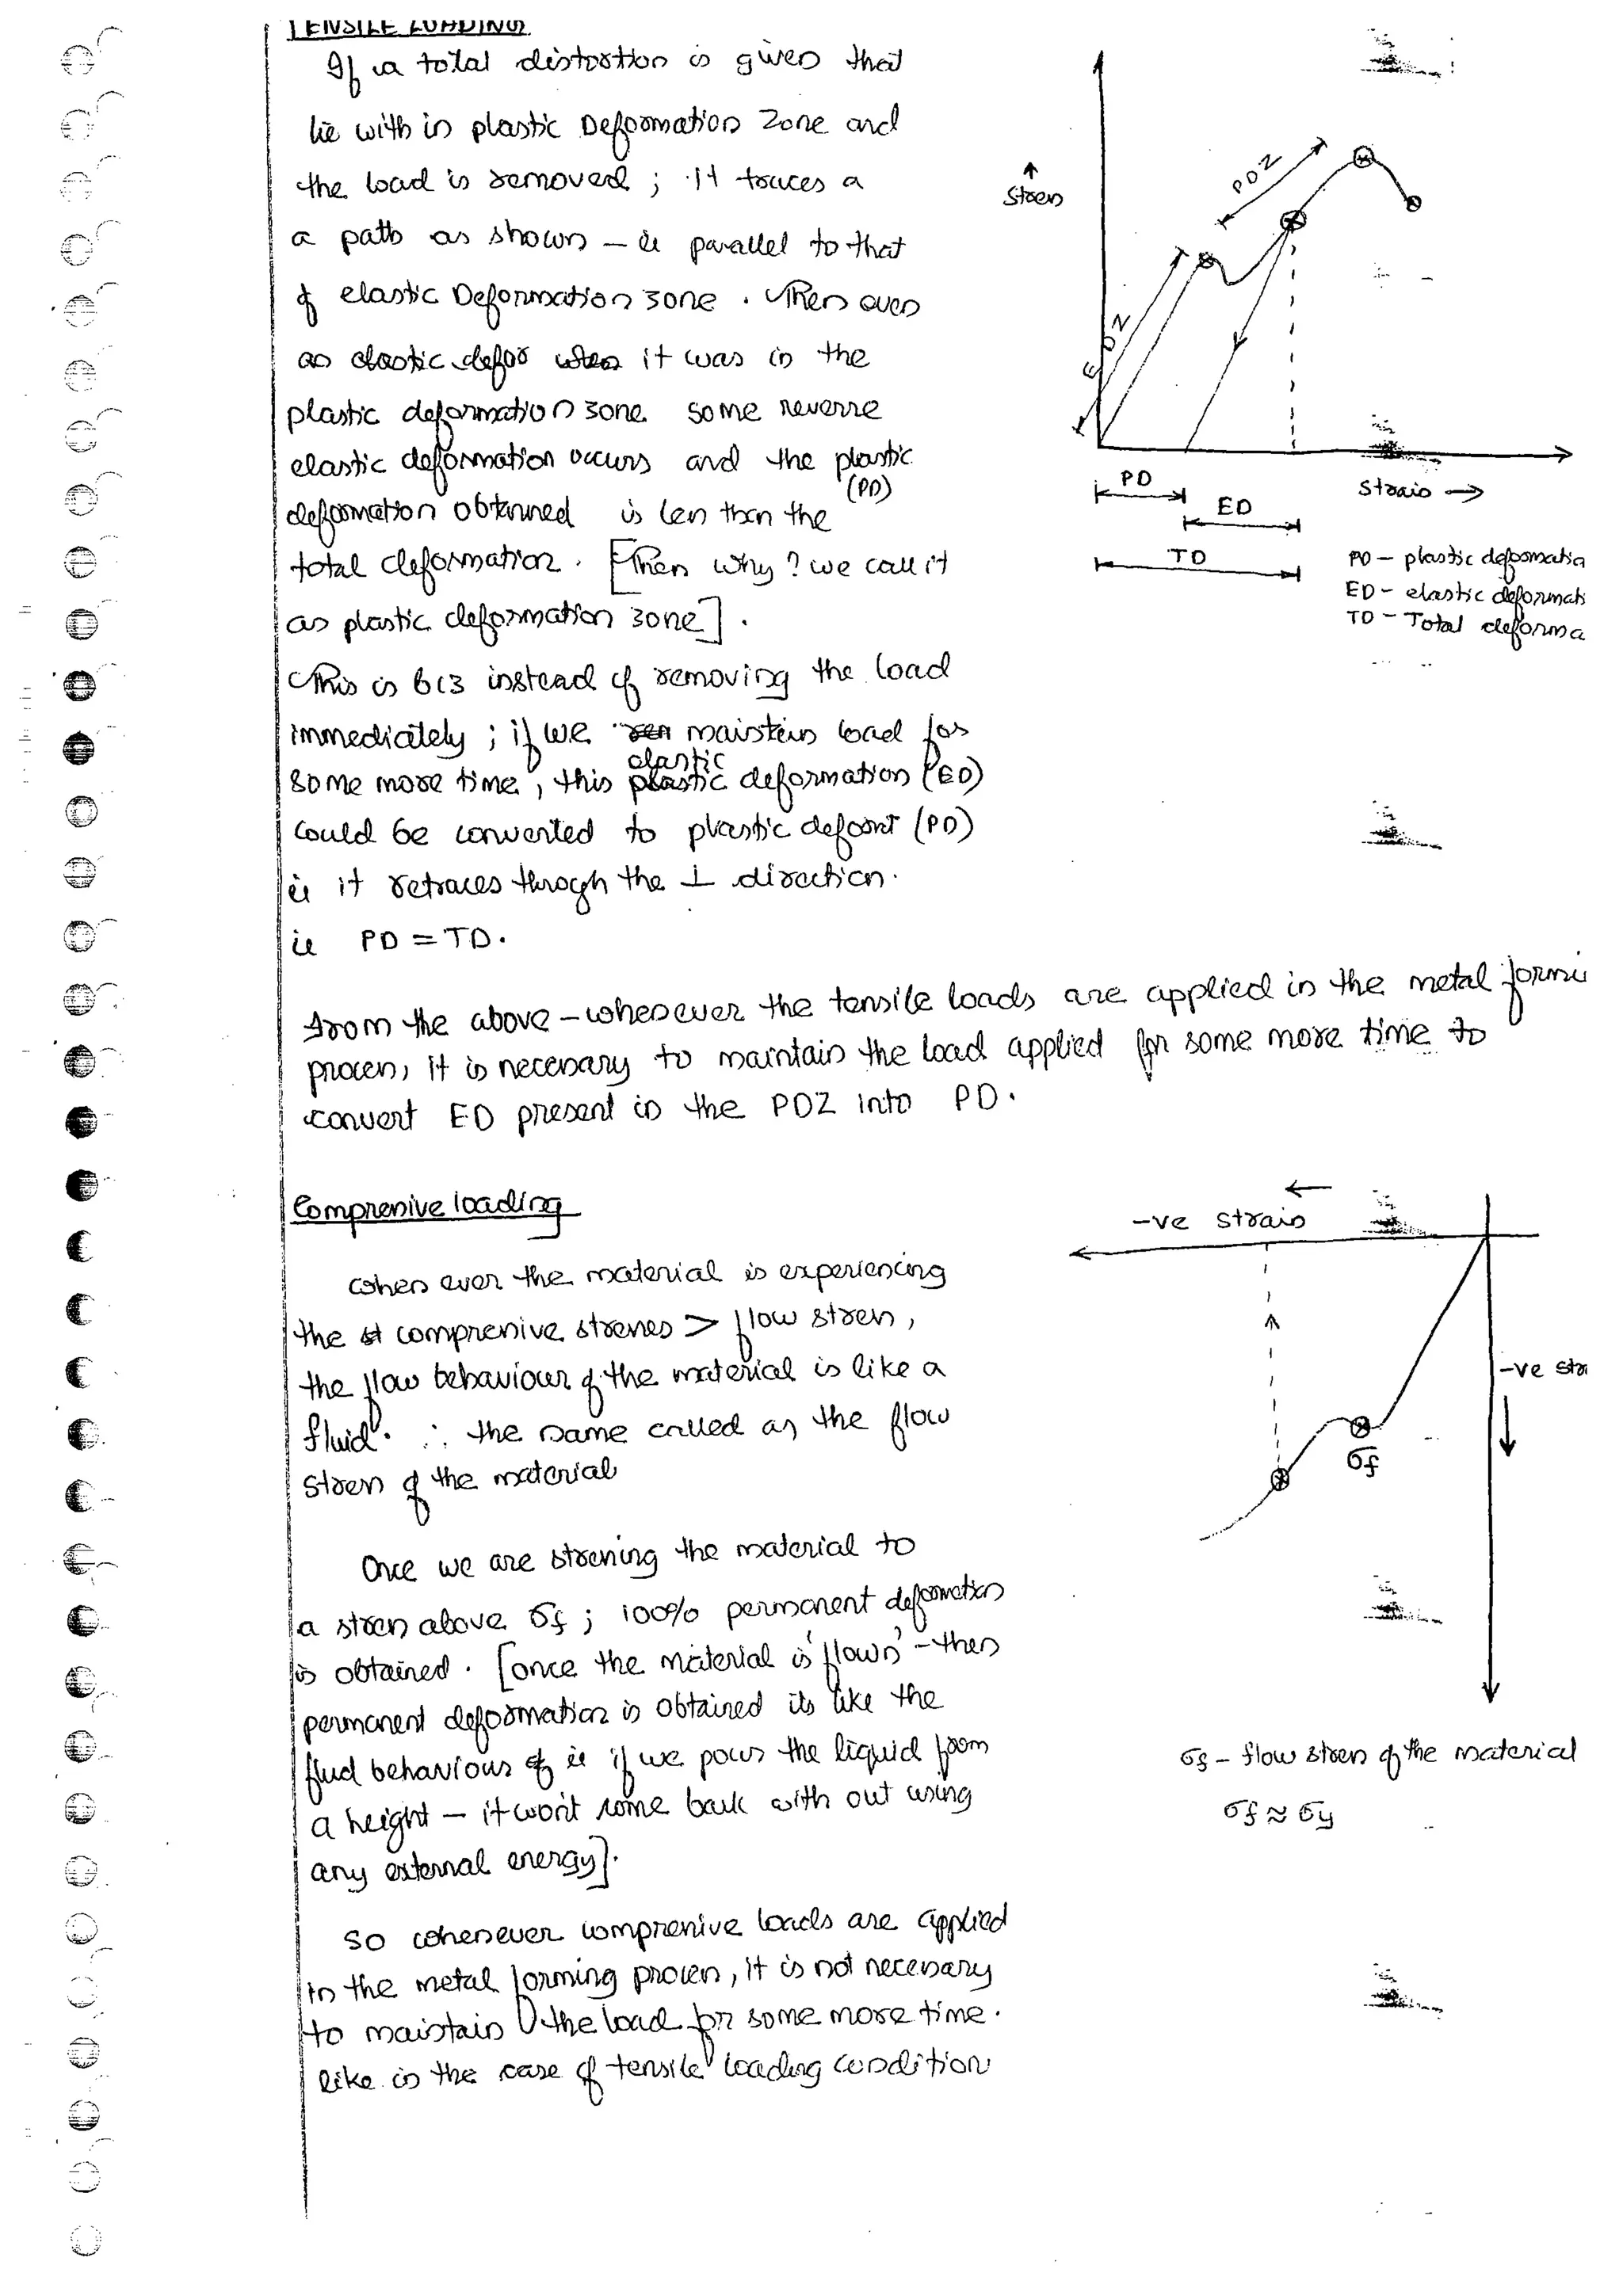 TENSILE LOADING
If a total distortion is given that
lie with in plastic Deformation Zone and
the load is removed ; it traces a
a path as shown – ie parallel to that
of elastic Deformation zone . Then even
as elastic defor when it was in the
plastic deformation zone some reverse
elastic deformation occurs and the plastic
(PD)
deformation obtained is less than the
total deformation . [Then why ? we call it
as plastic deformation zone] .
This is bcz instead of removing the load
immediately ; if we maintain load for
elastic
some more time , this plastic deformation (ED)
could be converted to plastic deformt (PD)
ie it retraces throgh the ⊥ direction.
ie PD = TD .
↑
Stress
PDZ
EDZ
Strain →
PD
ED
TD
PD – plastic deformatio
ED – elastic deformati
TD – Total deforma
from the above – whenever the tensile loads are applied in the metal formi
process, it is necessary to maintain the load applied for some more time to
convert ED present in the PDZ into PD .
Compressive loading
When ever the material is experiencing
the st compressive stresses > flow stress ,
the flow behaviour of the material is like a
fluid . ∴ the same called as the flow
stress of the material
Once we are stressing the material to
a stress above σf ; 100% permanent deformation
is obtained . [once the material is 'flown' – then
permanent deformation is obtained its like the
flud behaviour of ie if we pour the liquid from
a height – it won't come back with out using
any external energy].
So whenever compressive loads are applied
in the metal forming process, it is not necessary
to maintain the load for some more time .
like in the case of tensile loading condition
←
-ve strain
-ve str
σf
σf – flow stress of the material
σf ≈ σy